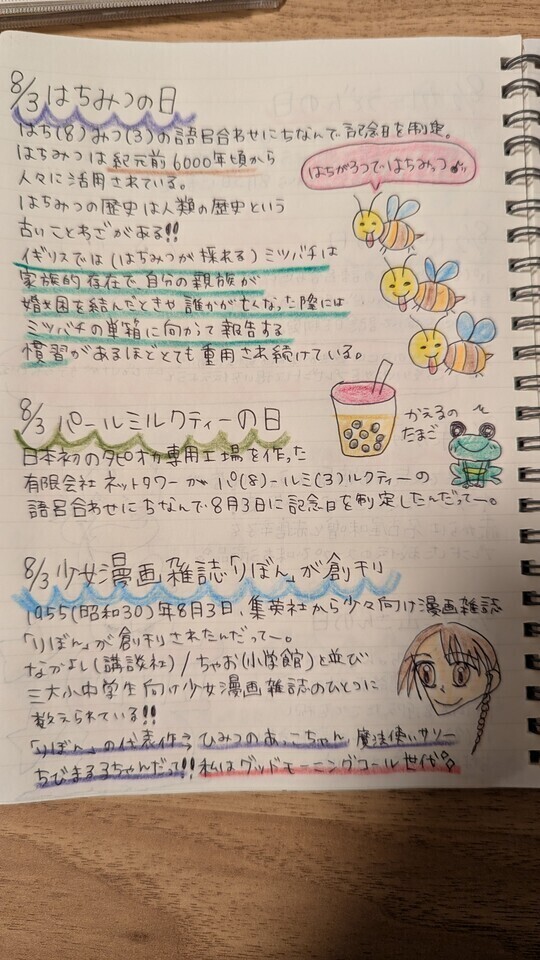 8/3 はちみつの日
はち(8)みつ(3)の語呂合わせにちなんで記念日を制定。
はちみつは紀元前6000年頃から
人々に活用されている。
はちみつの歴史は人類の歴史という
古いことわざがある!!
はちが3つではちみっつ
イギリスでは(はちみつが採れる)ミツバチは
家族的存在で、自分の親族が
婚姻を結んだときや誰かが亡くなった際には
ミツバチの巣箱に向かって報告する
慣習があるほどとても重用され続けている。
8/3 パールミルクティーの日
かえるの
たまご
日本初のタピオカ専用工場を作った
有限会社ネットタワーがパ(8)ールミ(3)ルクティーの
語呂合わせにちなんで8月3日に記念日を制定したんだってー。
8/3 少女漫画雑誌「りぼん」が創刊
1955(昭和30)年8月3日、集英社から少女向け漫画雑誌
「りぼん」が創刊されたんだってー。
なかよし(講談社)/ちゃお(小学館)と並び
三大小中学生向け少女漫画雑誌のひとつに
数えられている!!
「りぼん」の代表作→ひみつのあっこちゃん 魔法使いサリー
ちびまる子ちゃんだって!! 私はグッドモーニングコール世代